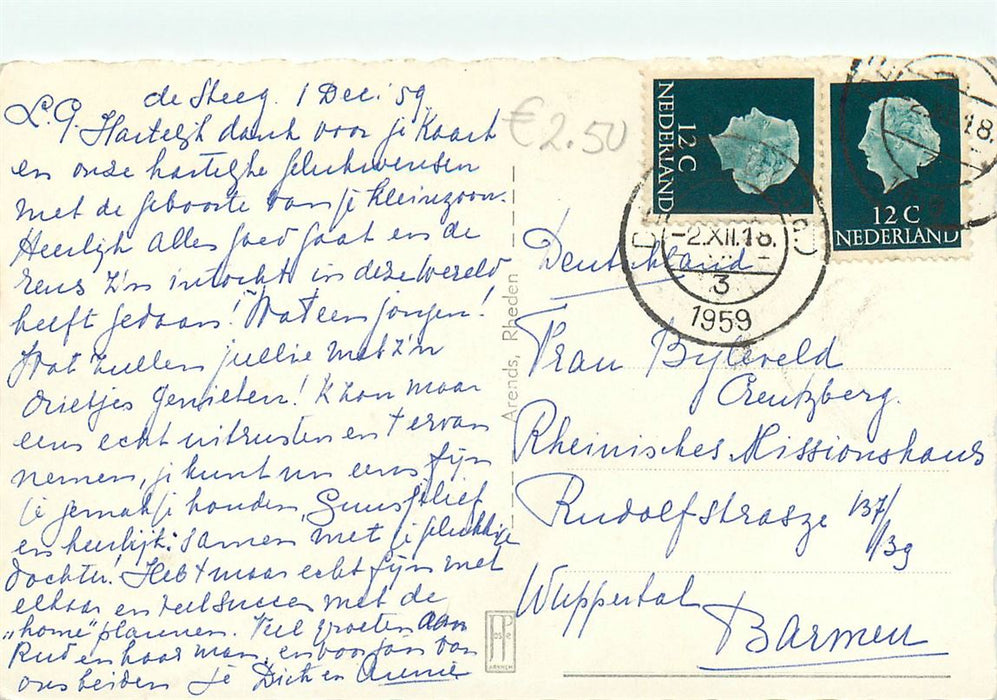 de Steeg. 1 Dec. '59.
L.G. Hartelijk dank voor je kaart
en onze hartelijke gelukwensen
met de geboorte van je kleinzoon.
Heerlijk alles goed gaat en de
reus z'n intocht in deze wereld
heeft gedaan! Wat een jongen!
Wat zullen jullie met z'n
drietjes genieten! K han maar
eens echt uitrusten en 't ervan
nemen, je kunt nu eens fijn
je gemakje houden,
en heerlijk samen met je gelukkige
dochter! Heb 't maar echt fijn met
elkaar en veel succes met de
„home" plannen. Veel groeten aan
Rud en haar man, en voor jou van
ons beiden je Dick en Annie
€ 2.50
Arends, Rheden
NEDERLAND
12 C
12 C
NEDERLAND
-2.XII.18.
3
1959
18.
Deutschland
Frau Byleveld
Creutzberg.
Rheinisches Missionshaus
Rudolfstrasze 137/
139
Wuppertal
Barmen
ARNHEM